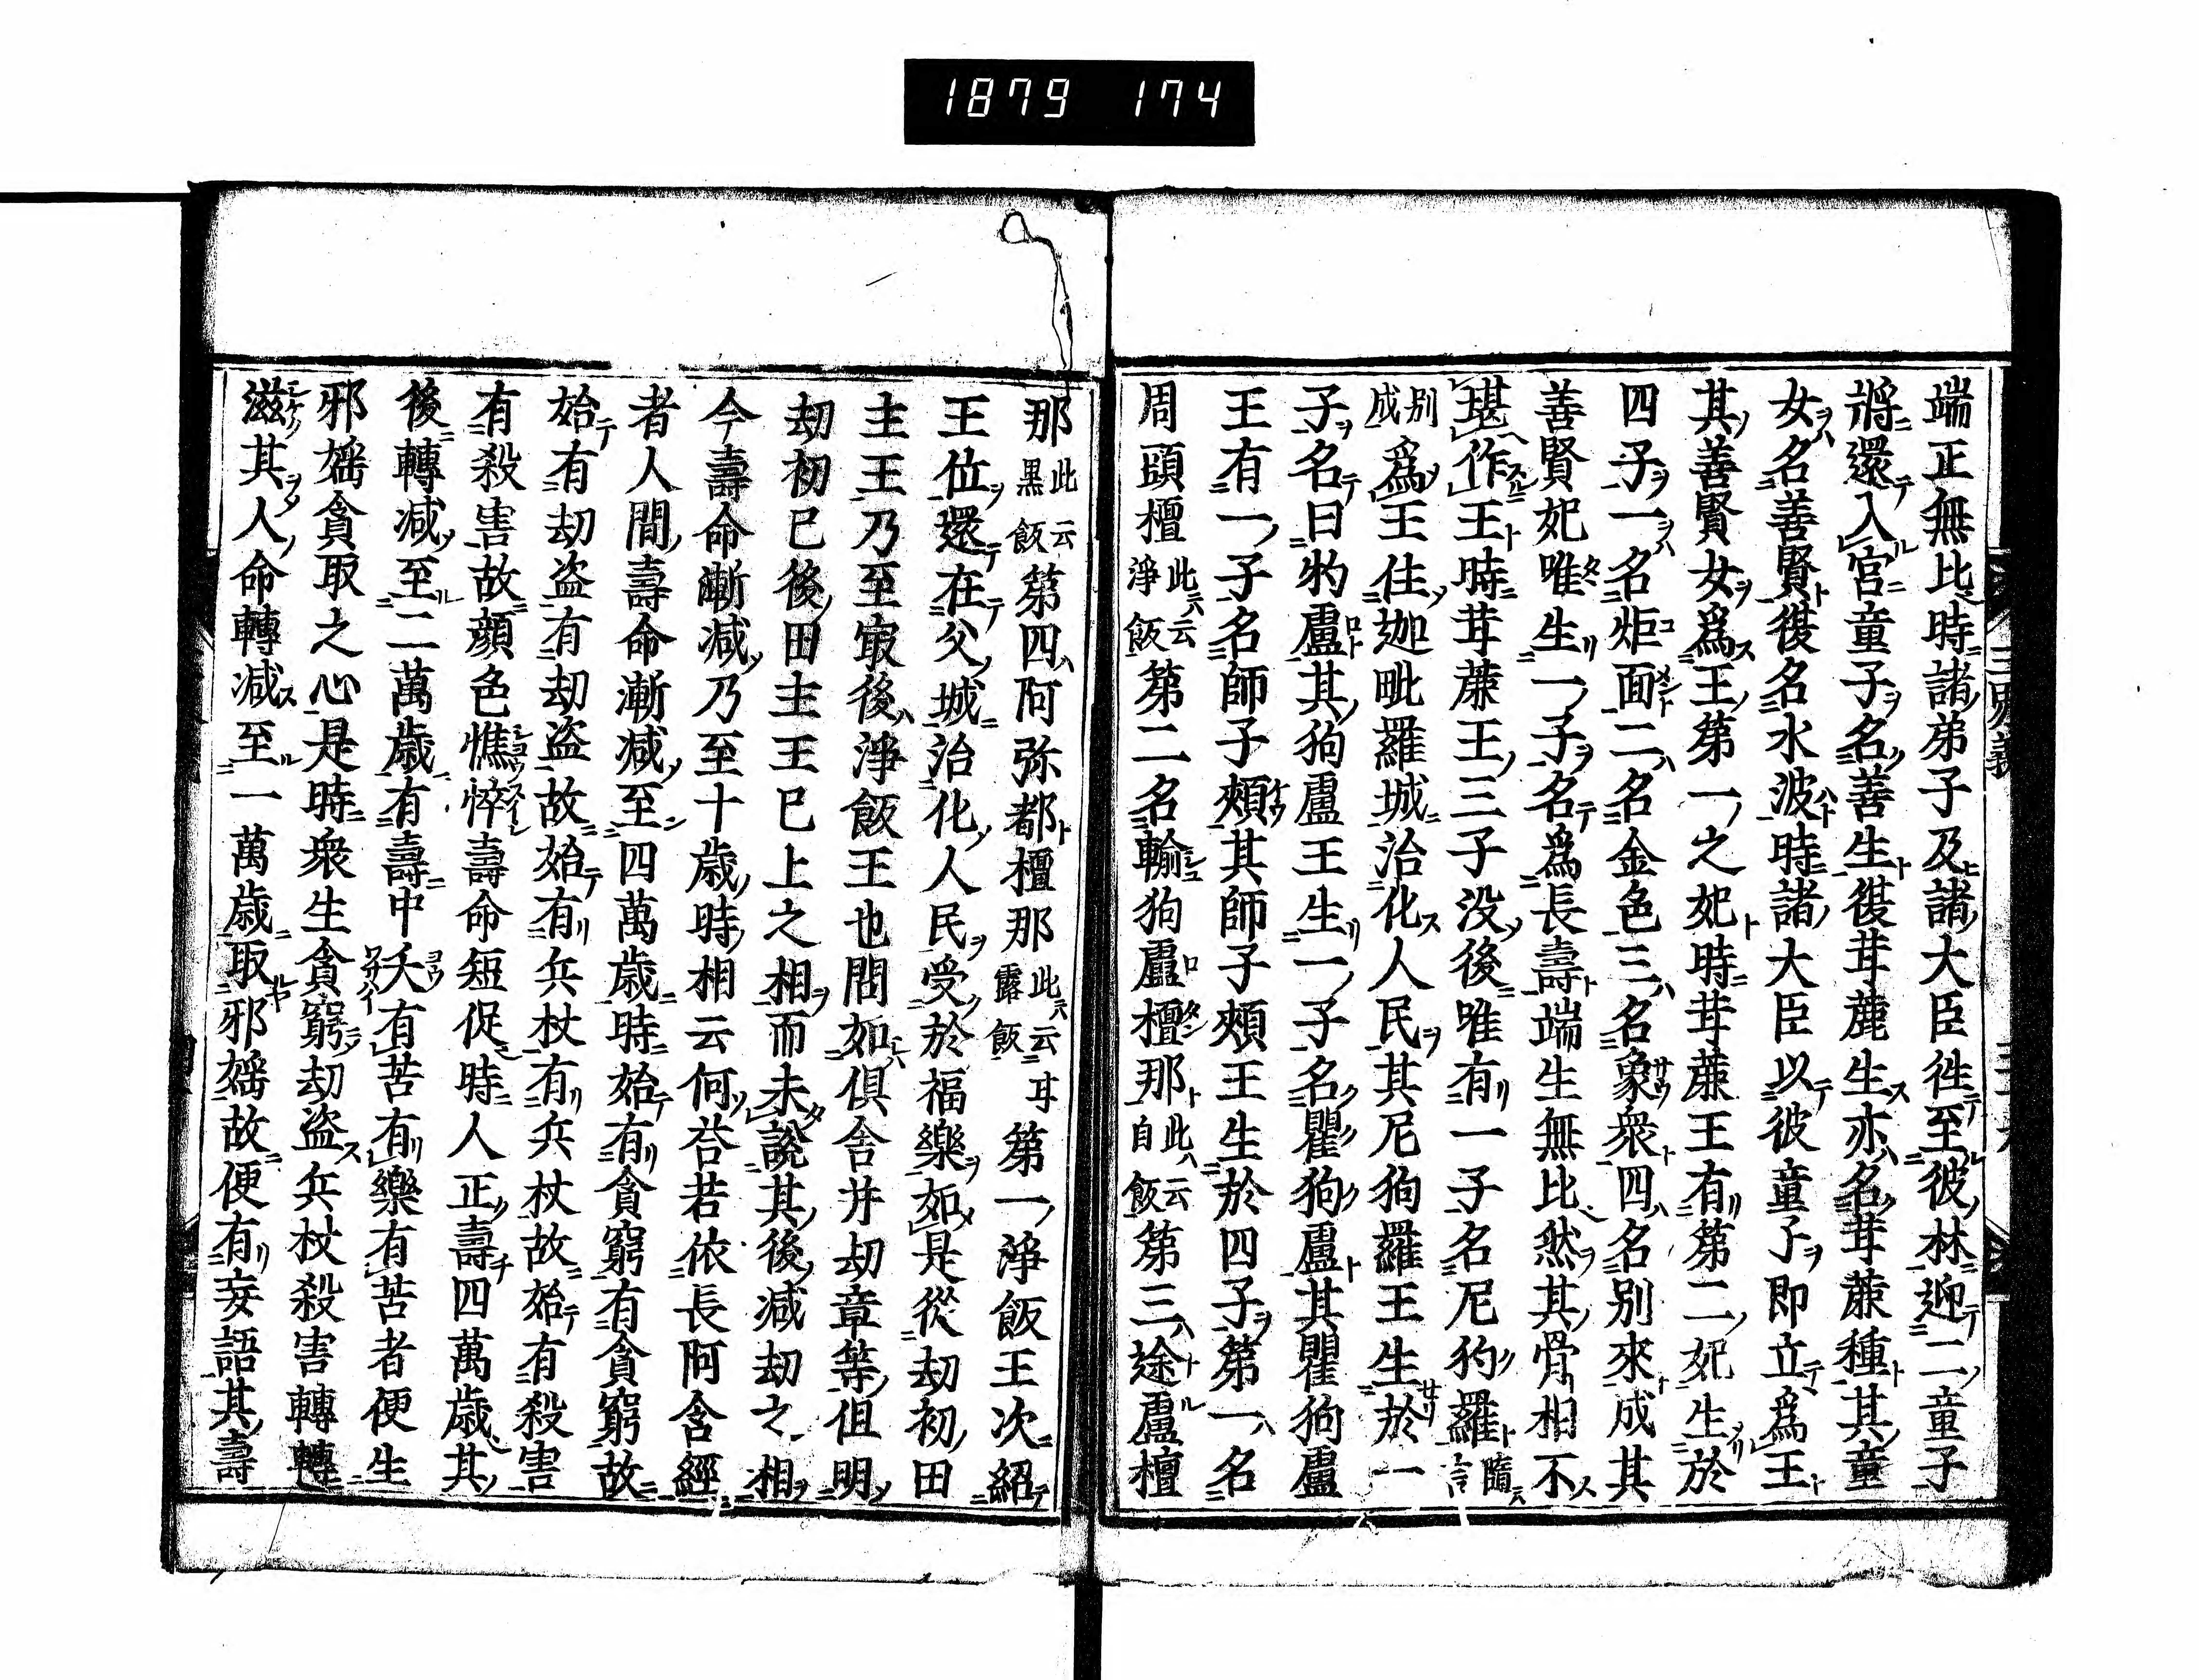 1879 174
端正無比時諸弟子及諸大臣徃至彼林迎二童子
將還入宮童子名善生從苷蔗生亦名苷蔗種其童
女名善賢復名水波時諸大臣以彼童子即立爲王
其善賢女爲王第一之妃時苷蔗王有第二妃生於
四子一名炬面二名金色三名象衆四名別來成其
善賢妃唯生一子名爲長壽端生無比然其骨相不
堪作王時苷蔗王三子没後唯有一子名尼狗羅隨言
別成爲王住迦毗羅城治化人民其尼狗羅王生於一
子名曰狗盧其狗盧王生一子名瞿狗盧其瞿狗盧
王有一子名師子頰其師子頰王生於四子第一名
周頭檀此云淨飯第二名輸狗盧檀那此云自飯第三途盧檀
那此云黒飯第四阿弥都檀那此云露飯于第一淨飯王次紹
王位還在父城治化人民受於福樂如是從劫初田
主王乃至㝡後淨飯王也問如倶舎并劫章等但明
劫初已後田主王已上之相而未說其後減劫之相
今壽命漸减乃至十歳時相云何荅若依長阿含經
者人間壽命漸减至四萬歳時始有貪窮有貪窮故
始有劫盗有劫盗故始有兵杖有兵杖故始有殺害
有殺害故顔色憔悴壽命短促時人正壽四萬歳其
後轉减至二萬歳有壽中夭有苦有樂有苦者便生
邪婬貪取之心是時衆生貪窮劫盗兵杖殺害轉轉
滋其人命轉减至一萬歳取邪婬故便有妄語其壽